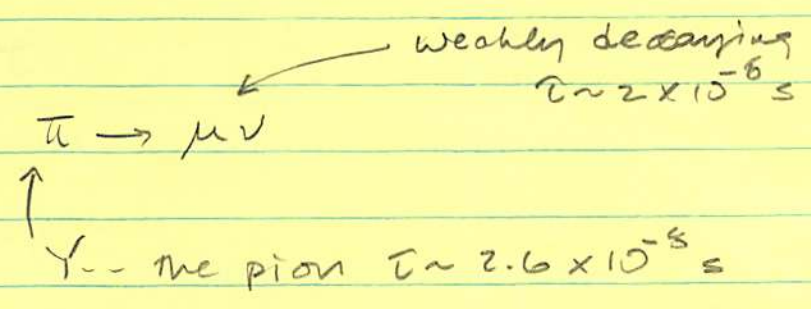 weakly decaying
τ ~ 2 × 10⁻⁶ s
π → μν
Y-- the pion τ ~ 2.6 × 10⁻⁸ s